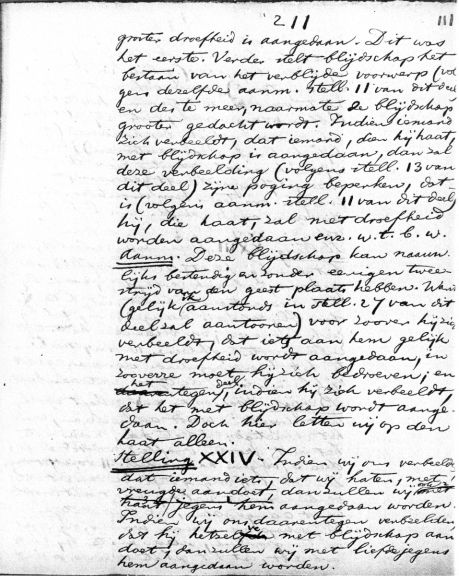 211 111
grooter droefheid is aangedaan. Dit was
het eerste. Verder stelt blijdschap het
bestaan van het verblijde voorwerp (vol
gens dezelfde aanm. stell. 11 van dit deel
en des te meer, naarmate de blijdschap
grooter gedacht wordt. Indien iemand
zich verbeeldt, dat iemand, dien hij haat,
met blijdschap is aangedaan, dan zal
deze verbeelding (volgens stell. 13 van
dit deel) zijne poging beperken, dat
is (volgens aanm. stell. 11 van dit deel)
hij, die haat, zal met droefheid
worden aangedaan enz. w. t. b. w.
Aanm. Deze blijdschap kan nauw
lijks bestendig en zonder eenigen twee
strijd van den geest plaats hebben. Want
(gelijk ik aanstonds in stell. 27 van dit
deel zal aantoonen) voor zoover hij zich
verbeeldt, dat iets aan hem gelijk
met droefheid wordt aangedaan, in
zooverre moet hij zich bedroeven; en
het tegendeel, indien hij zich verbeeldt,
dat het met blijdschap wordt aange
daan. Doch hier letten wij op den
haat alleen.
Stelling XXIV. Indien wij ons verbeelden
dat iemand iets, dat wij haten, met
vreugde aandoet, dan zullen wij
haat jegens hem aangedaan worden.
Indien wij ons daarentegen verbeelden,
dat hij hetzelfde met blijdschap aan
doet, dan zullen wij met liefde jegens
hem aangedaan worden.